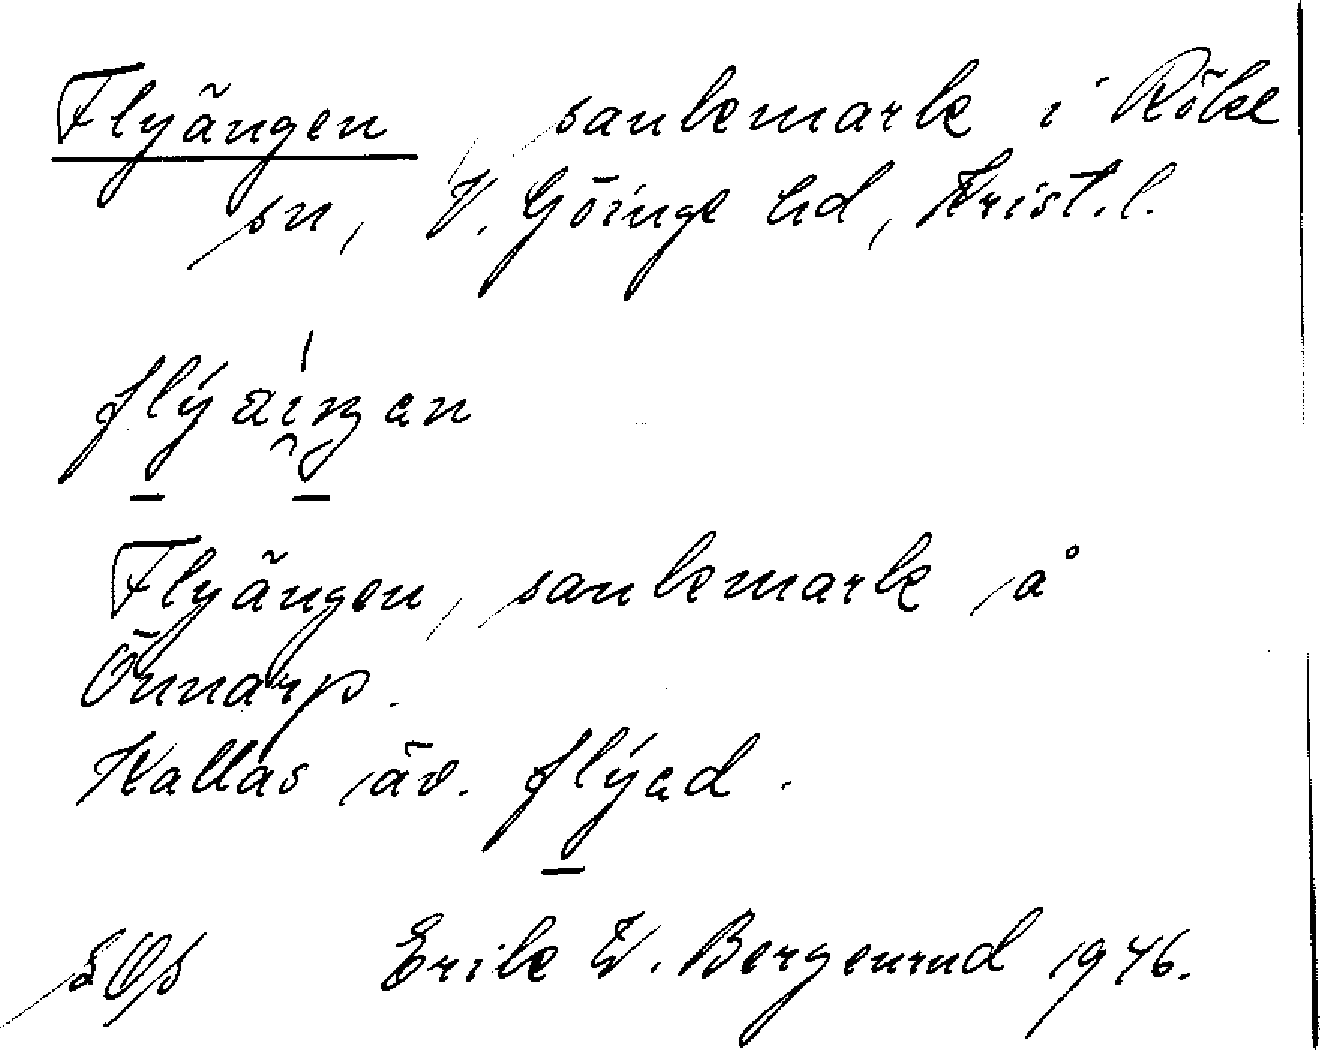 Flyängen, sankmark i Röke
sn, V. Göinge hd, Krist.l.
Flyängen, sankmark å
Önnarp.
Kallas äv. flýad.
Erik W. Bergenrud 1946.